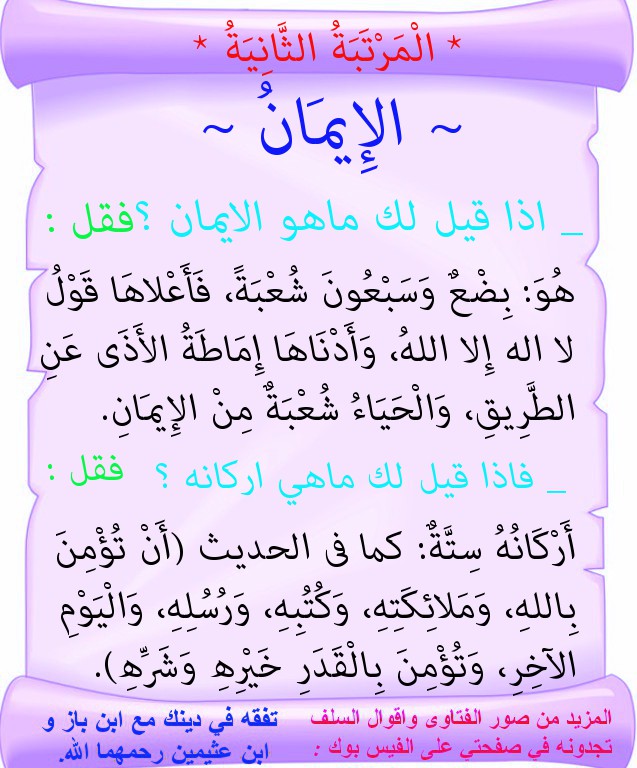 * الْمَرْتَبَةُ الثَّانِيَةُ *
~ الإِيمَانُ ~
_ اذا قيل لك ماهو الايمان ؟ فقل :
هُوَ: بِضْعٌ وَسَبْعُونَ شُعْبَةً، فَأَعْلاهَا قَوْلُ
لا اله إِلا اللهُ، وَأَدْنَاهَا إِمَاطَةُ الأَذَى عَنِ
الطَّرِيقِ، وَالْحَيَاءُ شُعْبَةٌ مِنْ الإِيمَانِ.
_ فاذا قيل لك ماهي اركانه ؟ فقل :
أَرْكَانُهُ سِتَّةٌ: كما فى الحديث (أَنْ تُؤْمِنَ
بِاللهِ، وَمَلائِكَتِهِ، وَكُتُبِهِ، وَرُسُلِهِ، وَالْيَوْمِ
الآخِرِ، وَتُؤْمِنَ بِالْقَدَرِ خَيْرِهِ وَشَرِّهِ).
المزيد من صور الفتاوى واقوال السلف
تجدونه في صفحتي على الفيس بوك :
تفقه في دينك مع ابن باز و
ابن عثيمين رحمهما الله.